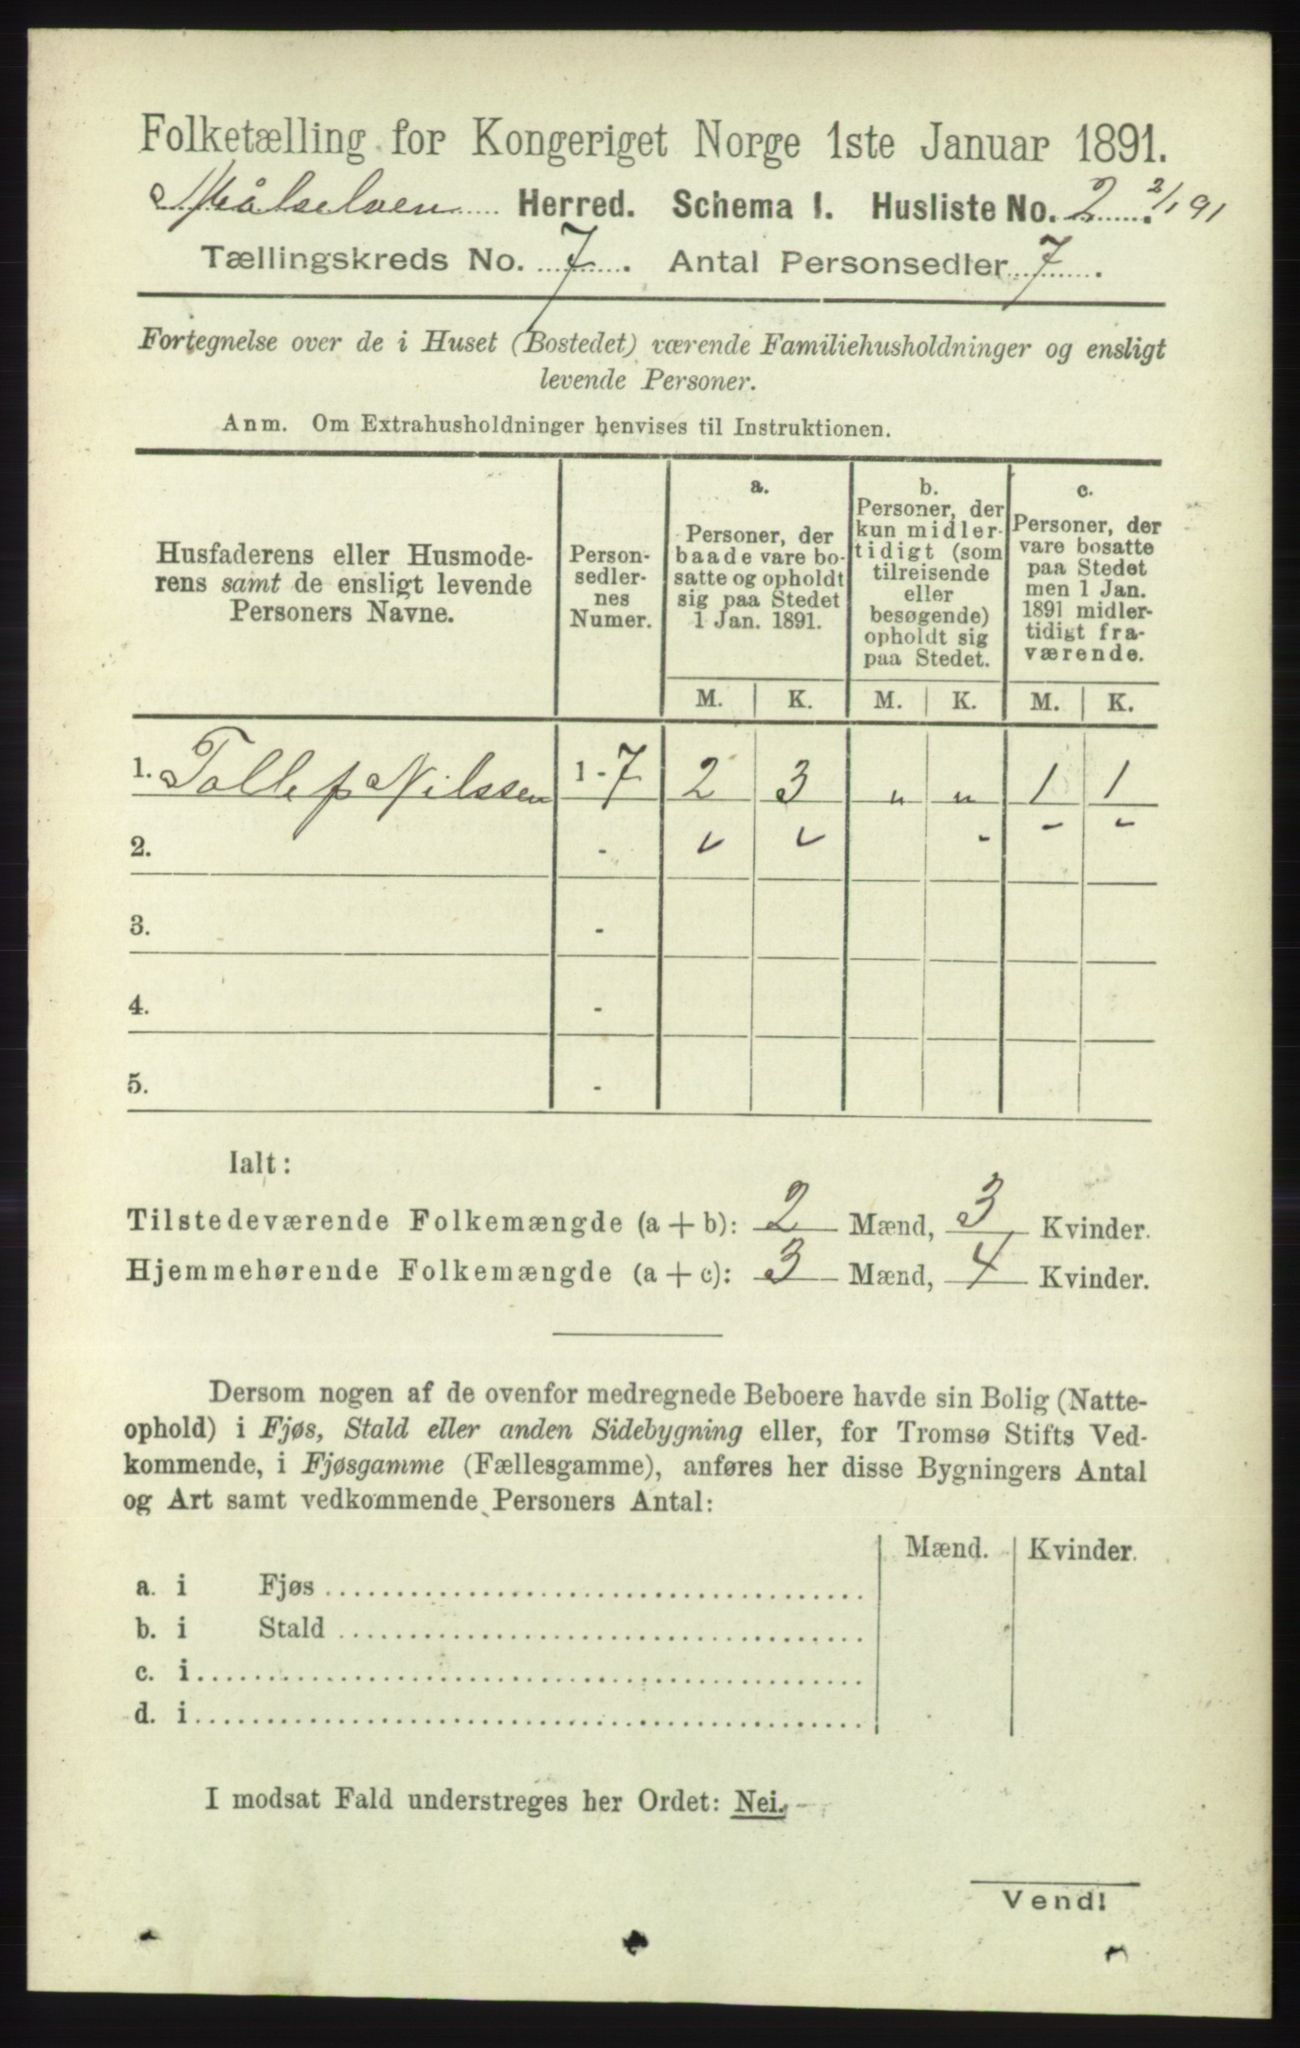 Folketælling for Kongeriget Norge 1ste Januar 1891.
Målselven Herred. Schema I. Husliste No. 2. 2/1 91
Tællingskreds No. 7. Antal Personsedler 7.
Fortegnelse over de i Huset (Bostedet) værende Familiehusholdninger og ensligt
levende Personer.
Anm. Om Extrahusholdninger henvises til Instruktionen.
Husfaderens eller Husmode-
rens samt de ensligt levende
Personers Navne.
Person-
sedler-
nes
Numer.
a.
Personer, der
baade vare bo-
satte og opholdt
sig paa Stedet
1 Jan. 1891.
b.
Personer, der
kun midler-
tidigt (som
tilreisende
eller
besøgende)
opholdt sig
paa Stedet.
c.
Personer, der
vare bosatte
paa Stedet
men 1 Jan.
1891 midler-
tidigt fra-
værende.
M. K. M. K. M. K.
1. Tollef Nilssen 1 - 7 2 3 „ „ 1 1
2. - ✓ ✓ - - -
3. -
4. -
5. -
Ialt:
Tilstedeværende Folkemængde (a + b): 2 Mænd, 3 Kvinder.
Hjemmehørende Folkemængde (a + c): 3 Mænd, 4 Kvinder.
Dersom nogen af de ovenfor medregnede Beboere havde sin Bolig (Natte-
ophold) i Fjøs, Stald eller anden Sidebygning eller, for Tromsø Stifts Ved-
kommende, i Fjøsgamme (Fællesgamme), anføres her disse Bygningers Antal
og Art samt vedkommende Personers Antal:
Mænd. Kvinder.
a. i Fjøs
b. i Stald
c. i
d. i
I modsat Fald understreges her Ordet: Nei.
Vend!